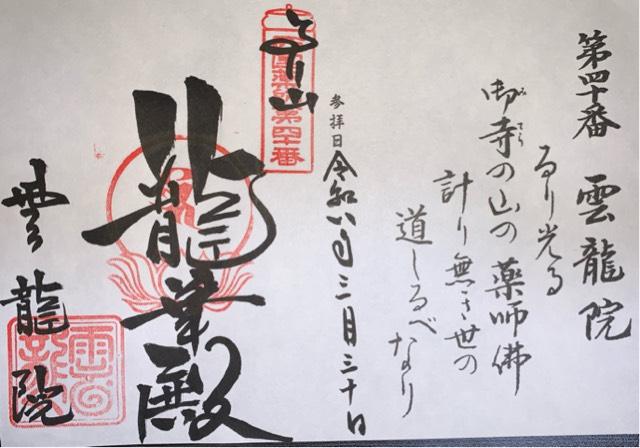 第四十番 雲龍院
るり光る
御寺の山の薬師佛
みてら
計り無き世の
道しるべなり
参拝日 令和八年三月三十日
西国薬師第四十番
龍華殿
雲龍院
雲龍院